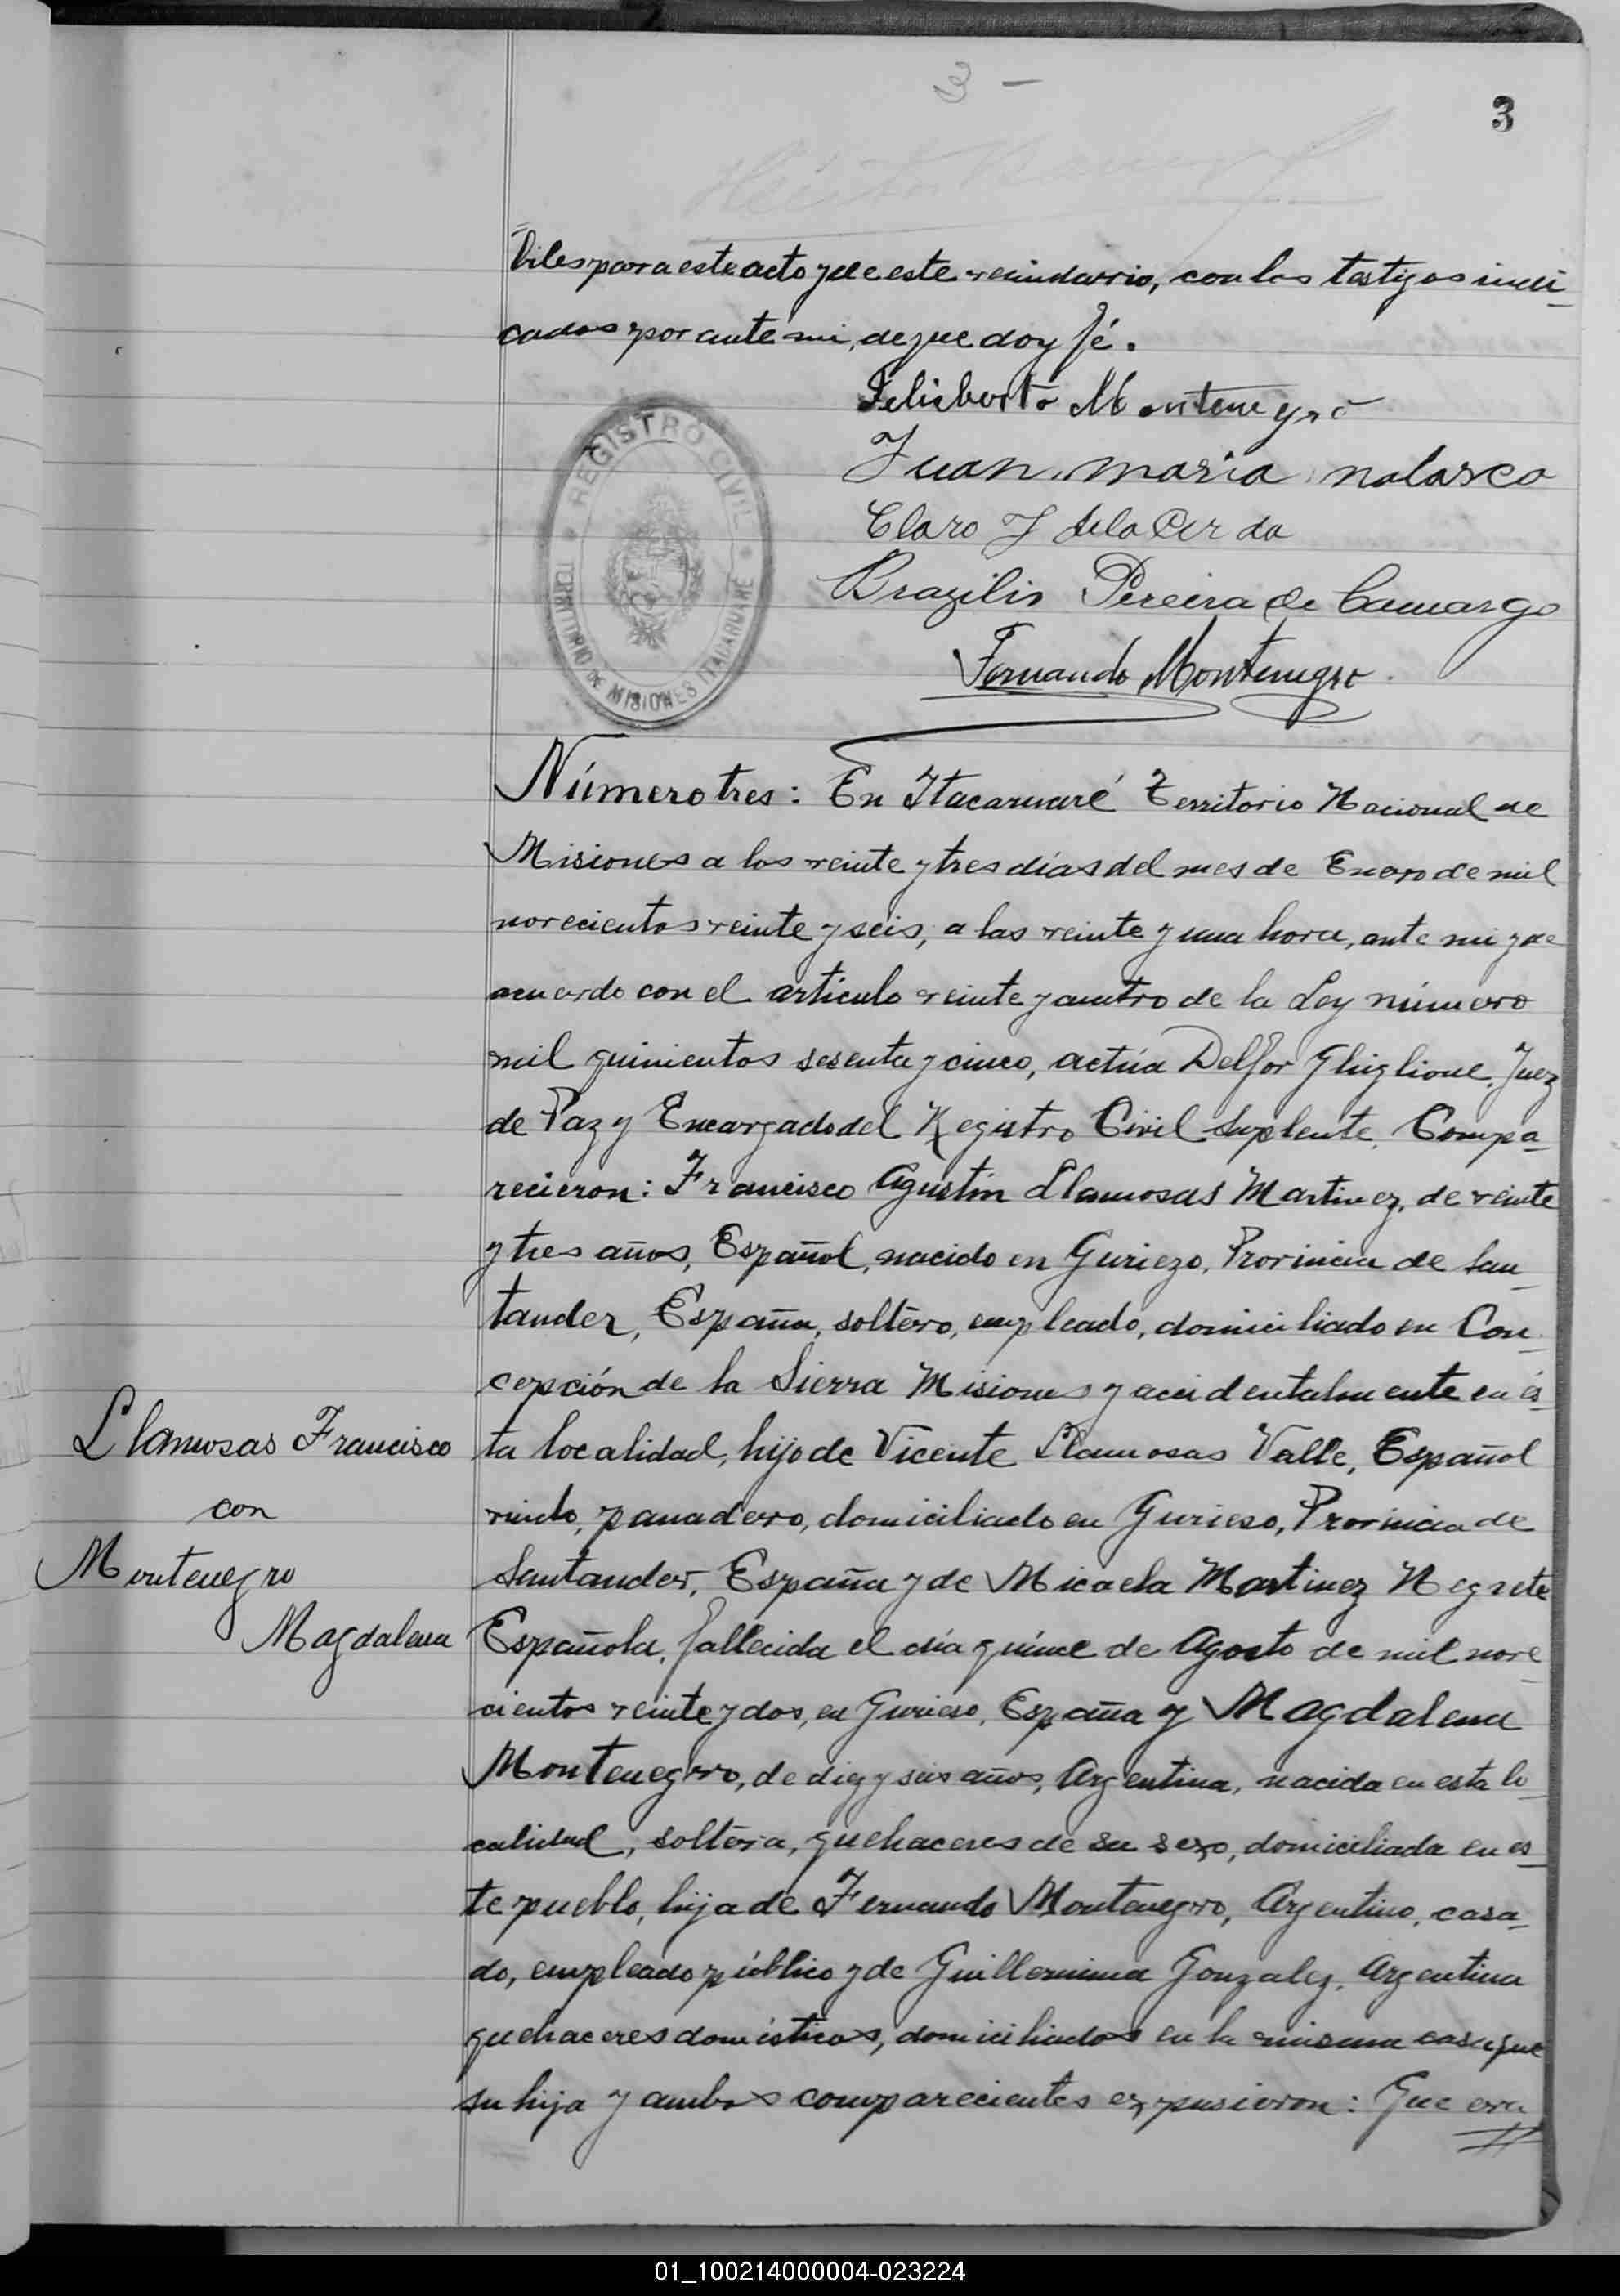 3 -
3
biles para este acto y de este vecindario, con los testigos indi-
cados por ante mi, de que doy fé.
Feliberto Montenegro
Juan maria nolasco
Claro J de la Cerda
Brazilio Pereira de Camargo
Fernando Montenegro
REGISTRO CIVIL
TERRITORIO DE MISIONES ITACARUARÉ
Número tres: En Itacaruaré Territorio Nacional de
Misiones a los veinte y tres días del mes de Enero de mil
novecientos veinte y seis, a las veinte y una hora, ante mi y de
acuerdo con el artículo veinte y cuatro de la Ley número
mil quinientos sesenta y cinco, actúa Delfor Ghiglione, Juez
de Paz y Encargado del Registro Civil Suplente. Compa-
recieron: Francisco Agustín Llamosas Martinez, de veinte
y tres años, Español, nacido en Guriezo, Provincia de San-
tander, España, soltero, empleado, domiciliado en Con-
cepción de la Sierra Misiones y accidentalmente en és-
ta localidad, hijo de Vicente Llamosas Valle, Español
viudo, panadero, domiciliado en Gurieso, Provincia de
Santander, España y de Micaela Martinez Negrete
Española, fallecida el día quince de Agosto de mil nove-
cientos veinte y dos, en Gurieso, España y Magdalena
Montenegro, de diez y seis años, Argentina, nacida en esta lo-
calidad, soltera, quehaceres de su sexo, domiciliada en es-
te pueblo, hija de Fernando Montenegro, Argentino, casa-
do, empleado público y de Guillermina Gonzalez, Argentina
quehaceres domésticos, domiciliados en la misma casa que
su hija y ambos comparecientes expusieron: Que era
Llamosas Francisco
con
Montenegro
Magdalena
01_100214000004-023224